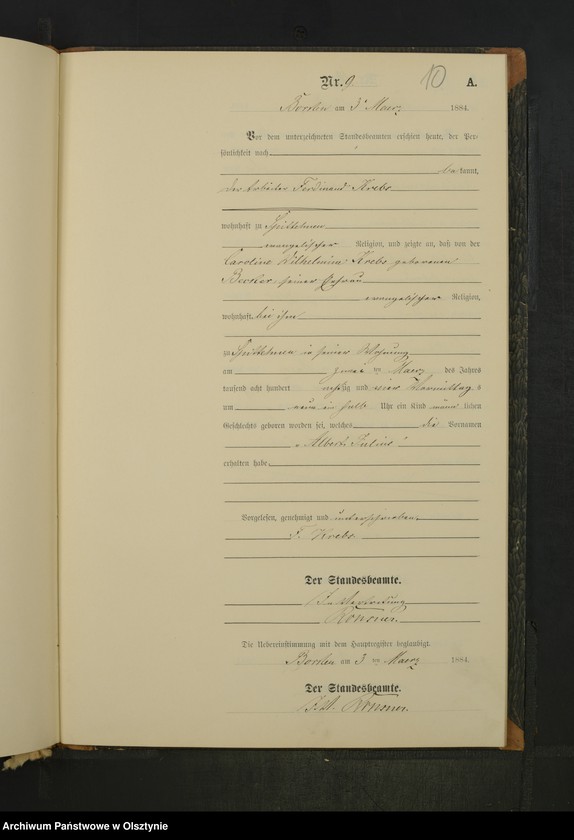 Nr. 9. 10 A.
am 3 Maerz 1884.
Vor dem unterzeichneten Standesbeamten erschien heute, der Per-
sönlichkeit nach
bekannt,
der Arbeiter Ferdinand Krebs
wohnhaft zu
evangelischer Religion, und zeigte an, daß von der
Caroline Wilhelmine Krebs geborenen
seiner Ehefrau
evangelischer Religion,
wohnhaft bei ihm
zu in seiner Wohnung
am zwei ten Maerz des Jahres
tausend acht hundert achtzig und vier Vormittags
um neun ein halb Uhr ein Kind männlichen
Geschlechts geboren worden sei, welches die Vornamen
"Albert Julius"
erhalten habe.
Vorgelesen, genehmigt und unterschrieben
F. Krebs
Der Standesbeamte.
In Vertretung
Die Uebereinstimmung mit dem Hauptregister beglaubigt.
am 3 ten Maerz 1884.
Der Standesbeamte.
Archiwum Państwowe w Olsztynie